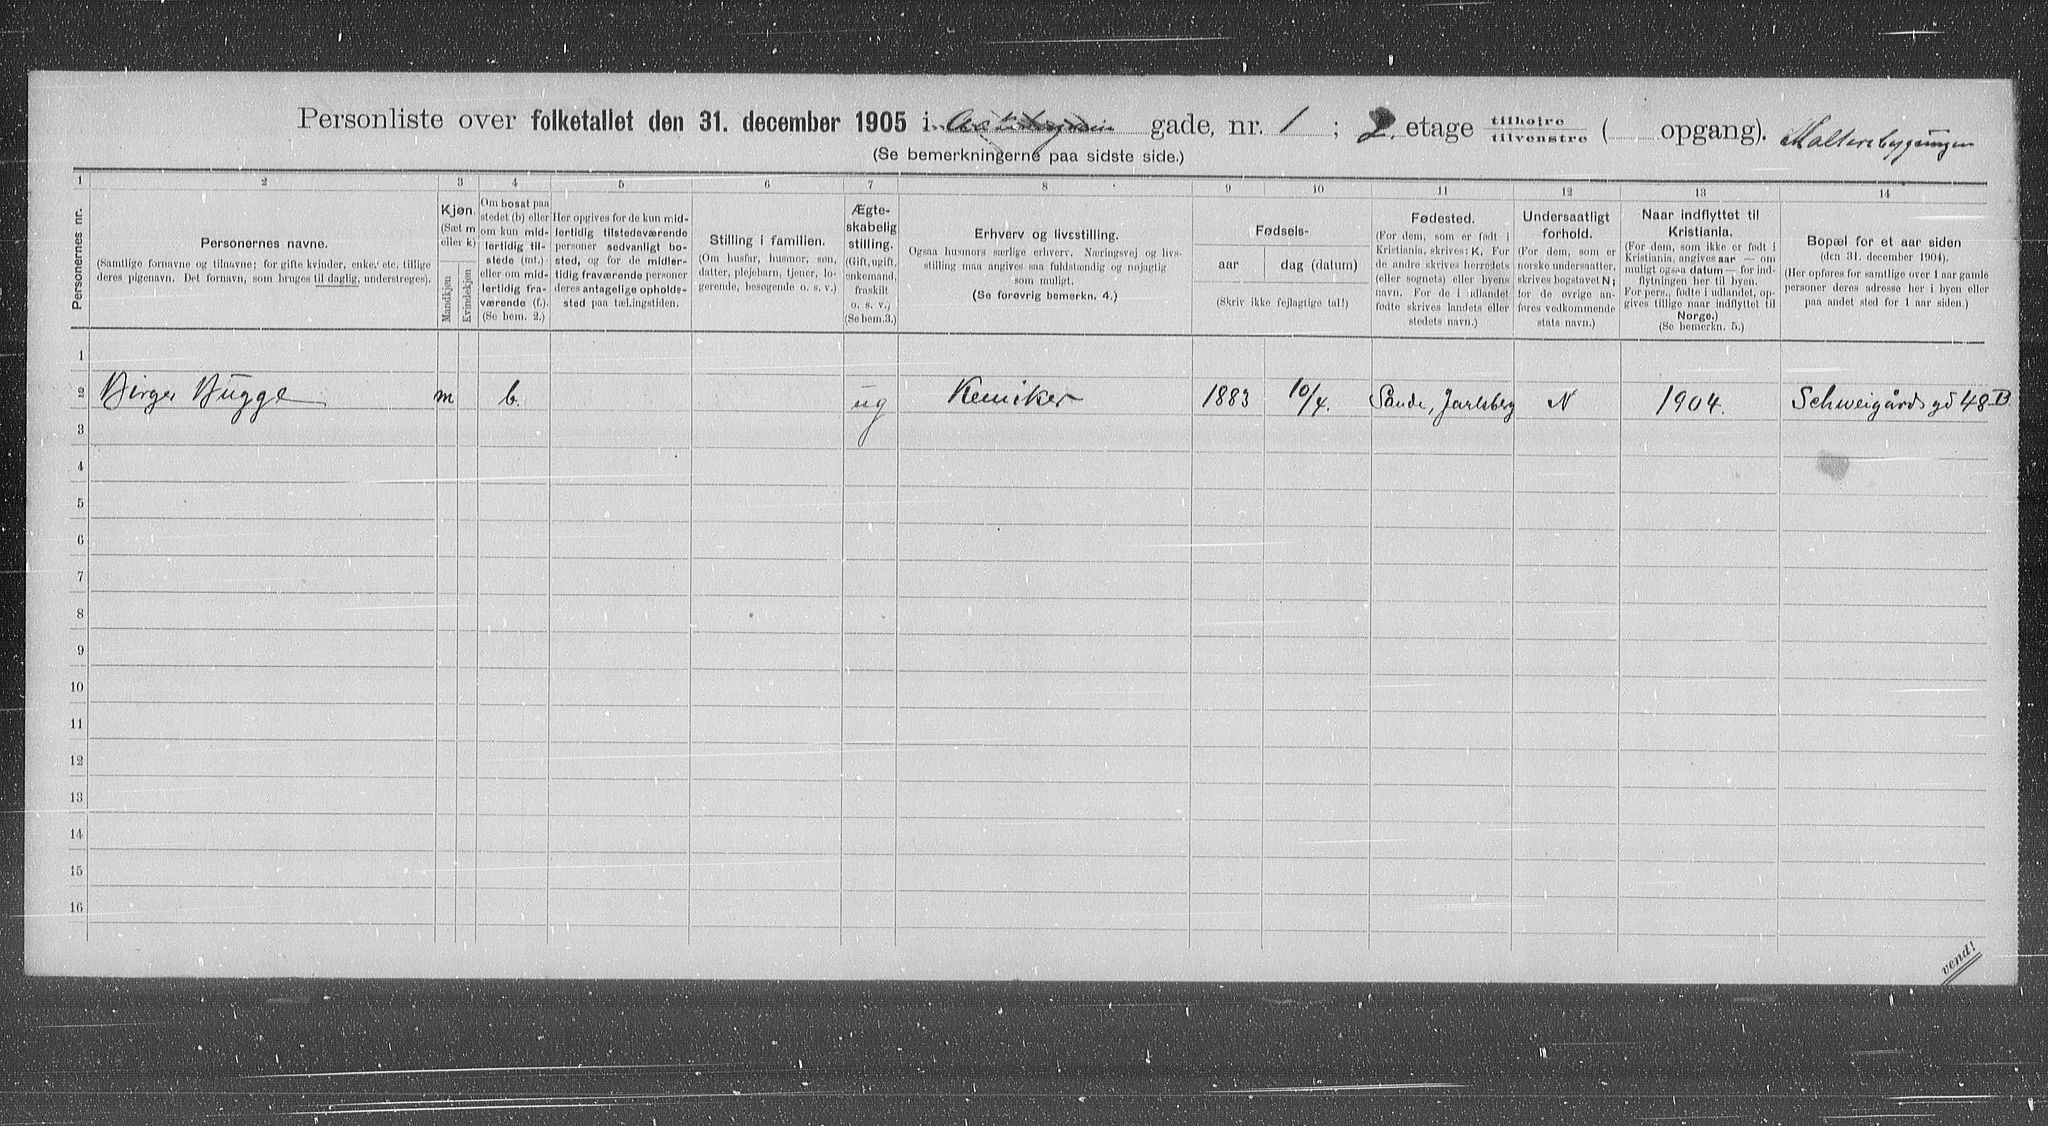 Personliste over folketallet den 31. december 1905 i gade, nr. 1 ; 2. etage tilhøire tilvenstre ( opgang). Malteribygningen
(Se bemerkningerne paa sidste side.)
1 2 3 4 5 6 7 8 9 10 11 12 13 14
Personernes nr.
Personernes navne.
(Samtlige fornavne og tilnavne; for gifte kvinder, enker etc. tillige
deres pigenavn. Det fornavn, som bruges til daglig, understreges).
Kjøn.
(Sæt m
eller k)
Mandkjøn
Kvindekjøn
Om bosat paa
stedet (b) eller
om kun mid-
lertidig til-
stede (mt.)
eller om mid-
lertidig fra-
værende (f.)
(Se bem. 2.)
Her opgives for de kun mid-
lertidig tilstedeværende
personer sedvanligt bo-
sted, og for de midler-
tidig fraværende personer
deres antagelige opholds-
sted paa tællingstiden.
Stilling i familien.
(Om husfar, husmor, søn,
datter, plejebarn, tjener, lo-
gerende, besøgende o. s. v.)
Ægte-
skabelig
stilling.
(Gift, ugift,
enkemand,
fraskilt
o. s. v.)
(Se bem.3.)
Erhverv og livsstilling.
Ogsaa husmors særlige erhverv. Næringsvej og livs-
stilling maa angives saa fuldstændig og nøjagtig
som muligt.
(Se forøvrig bemerkn. 4.)
Fødsels-
aar
dag (datum)
(Skriv ikke fejlagtige tal!)
Fødested.
(For dem, som er født i
Kristiania, skrives: K. For
de andre skrives herredets
(eller sognets) eller byens
navn. For de i udlandet
fødte skrives landets eller
stedets navn.)
Undersaatligt
forhold.
(For dem, som er
norske undersaatter,
skrives bogstavet N;
for de øvrige an-
føres vedkommende
stats navn.)
Naar indflyttet til
Kristiania.
(For dem, som ikke er født i
Kristiania, angives aar — om
muligt ogsaa datum — for ind-
flytningen her til byen.
For pers., fødte i udlandet, op-
gives tillige naar indflyttet til
Norge.)
(Se bemerkn. 5.)
Bopæl for et aar siden
(den 31. december 1904).
(Her opføres for samtlige over 1 aar gamle
personer deres adresse her i byen eller
paa andet sted for 1 aar siden.)
1
2 Birger Bugge m b. ug Kemiker 1883 10/4. Sande, Jarlsberg N 1904. Schweigårdsgd 48 B.
3
4
5
6
7
8
9
10
11
12
13
14
15
16
vend!